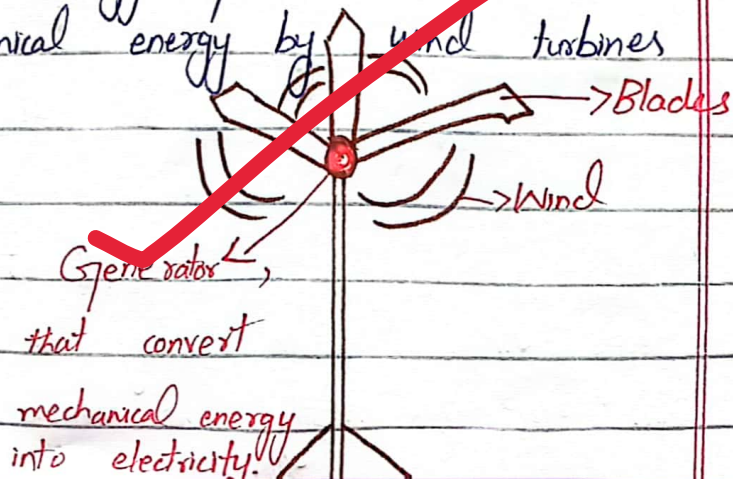 energy by wind turbines
Blades
Wind
Generator,
that convert
mechanical energy
into electricity.